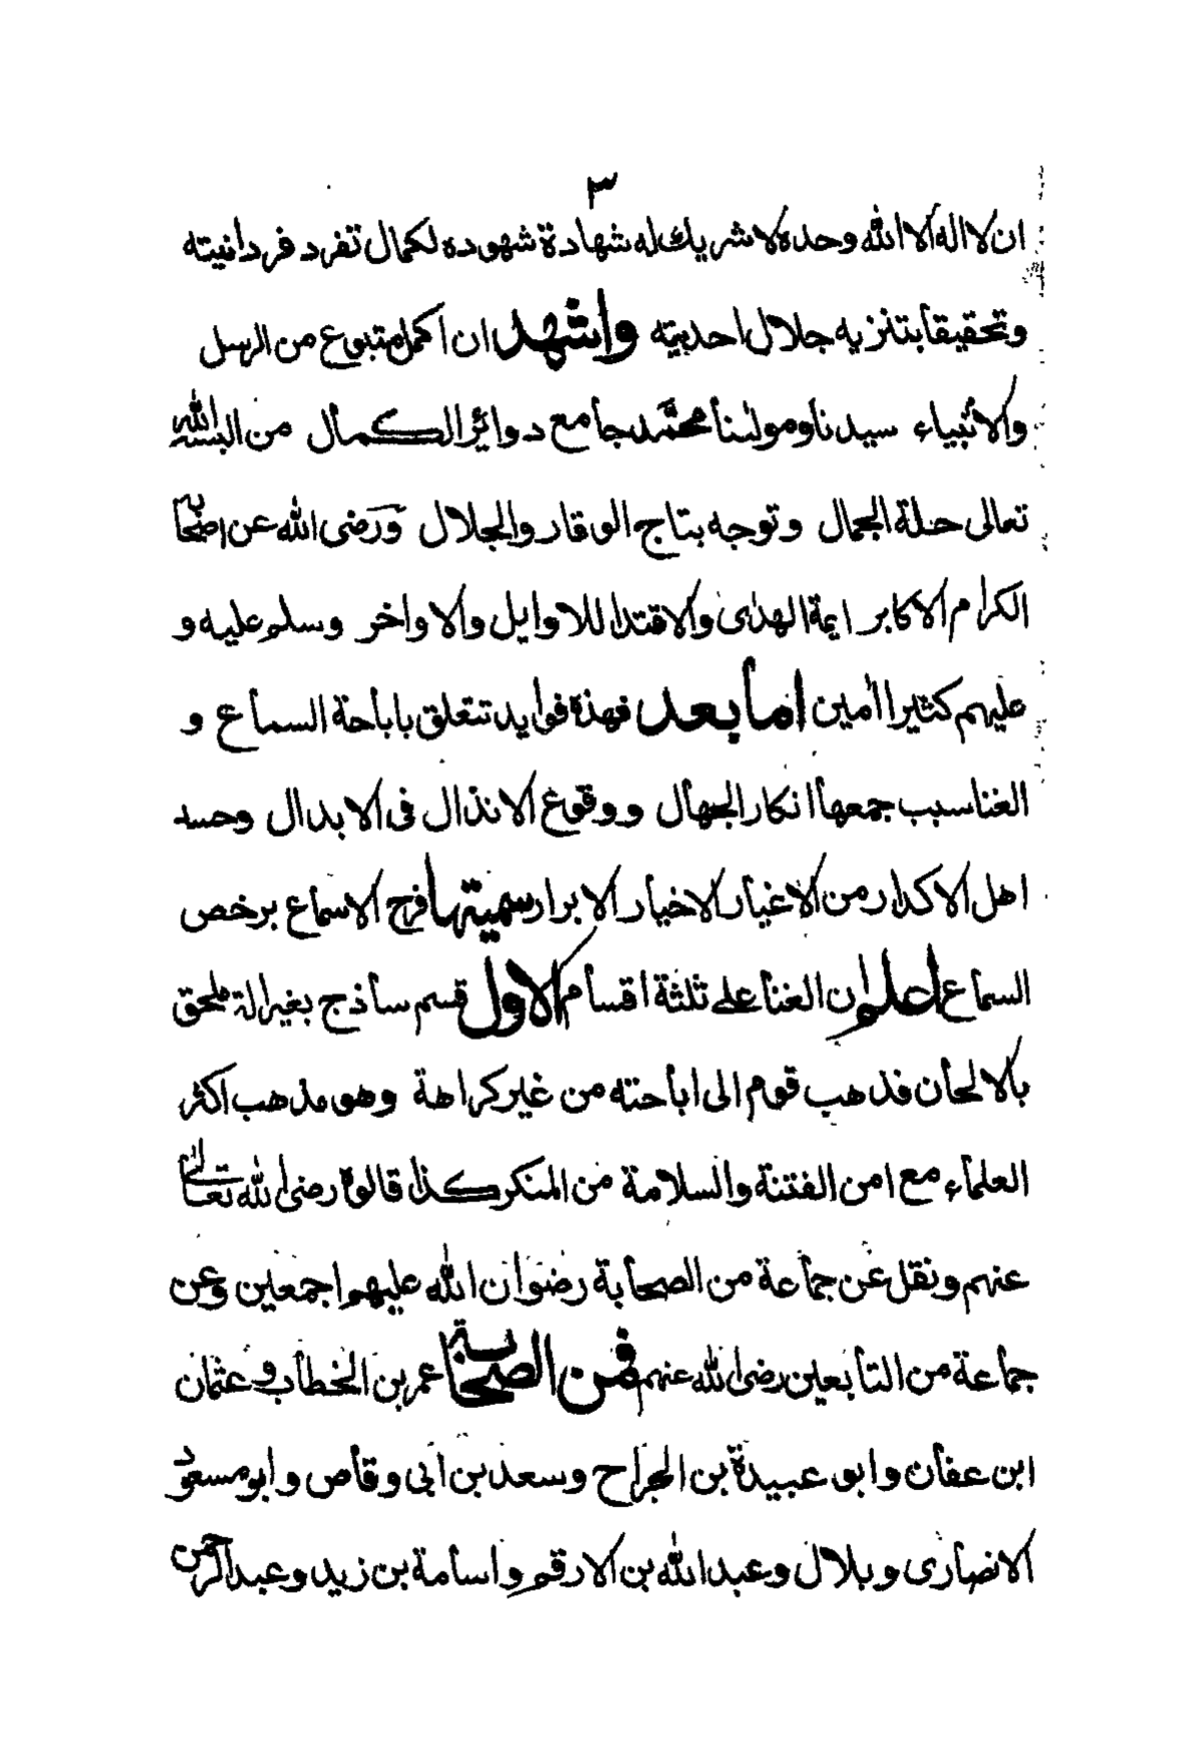 ٣
ان لا اله الا الله وحده لا شريك له شهادة شهوده لكمال تفرد فردانيته
وتحقيقا بتنزيه جلال احديته واشهد ان اكمل متبوع من الرسل
والانبياء سيدنا ومولنا محمد جامع دوائر الكمال من البسه الله
تعالى حلة الجمال وتوجه بتاج الوقار والجلال ورضى الله عن اصحابه
الكرام الاكابر ايمة الهدى والاقتدا للاوايل والاواخر وسلم عليه و
عليهم كثيرا امين اما بعد فهذه فوايد تتعلق باباحة السماع و
الغنا سبب جمعها انكار الجهال ووقوع الانذال فى الابدال وحسد
اهل الاكدار من الاغيار الاخيار الابرار سميتها فرج الاسماع برخص
السماع اعلم ان الغنا على ثلثة اقسام الاول قسم ساذج بغير الة ملحق
بالالحان فذهب قوم الى اباحته من غير كراهة وهو مذهب اكثر
العلماء مع امن الفتنة والسلامة من المنكر كذا قالوه رضى الله تعالى
عنهم ونقل عن جماعة من الصحابة رضوان الله عليهم اجمعين وعن
جماعة من التابعين رضى الله عنهم فمن الصحابة عمر بن الخطاب وعثمان
ابن عفان وابو عبيدة بن الجراح وسعد بن ابى وقاص وابو مسعود
الانصارى وبلال وعبد الله بن الارقم واسامة بن زيد وعبد الرحمن